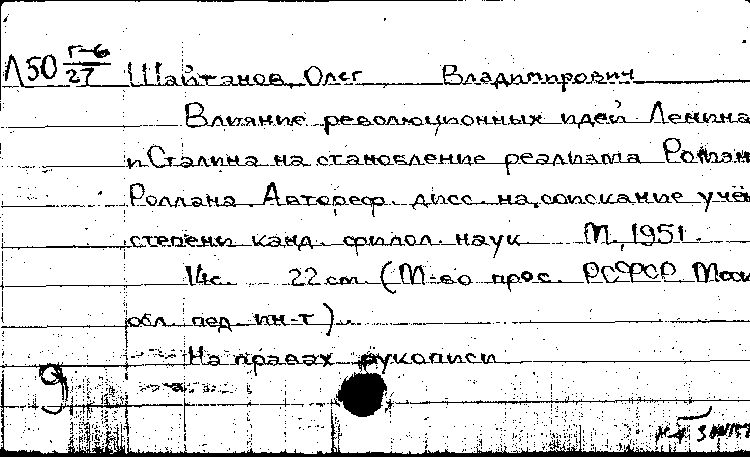 Л50 Г-6/27 Шайтанов, Олег Владимирович
Влияние революционных идей Ленина
и Сталина на становление реализма Ромэн
Роллана. Автореф. дисс. на соискание учён
степени канд. филол. наук М., 1951.
14с. 22 см. (М-во прос. РСФСР. Моск
обл. пед. ин-т).
На правах рукописи
9